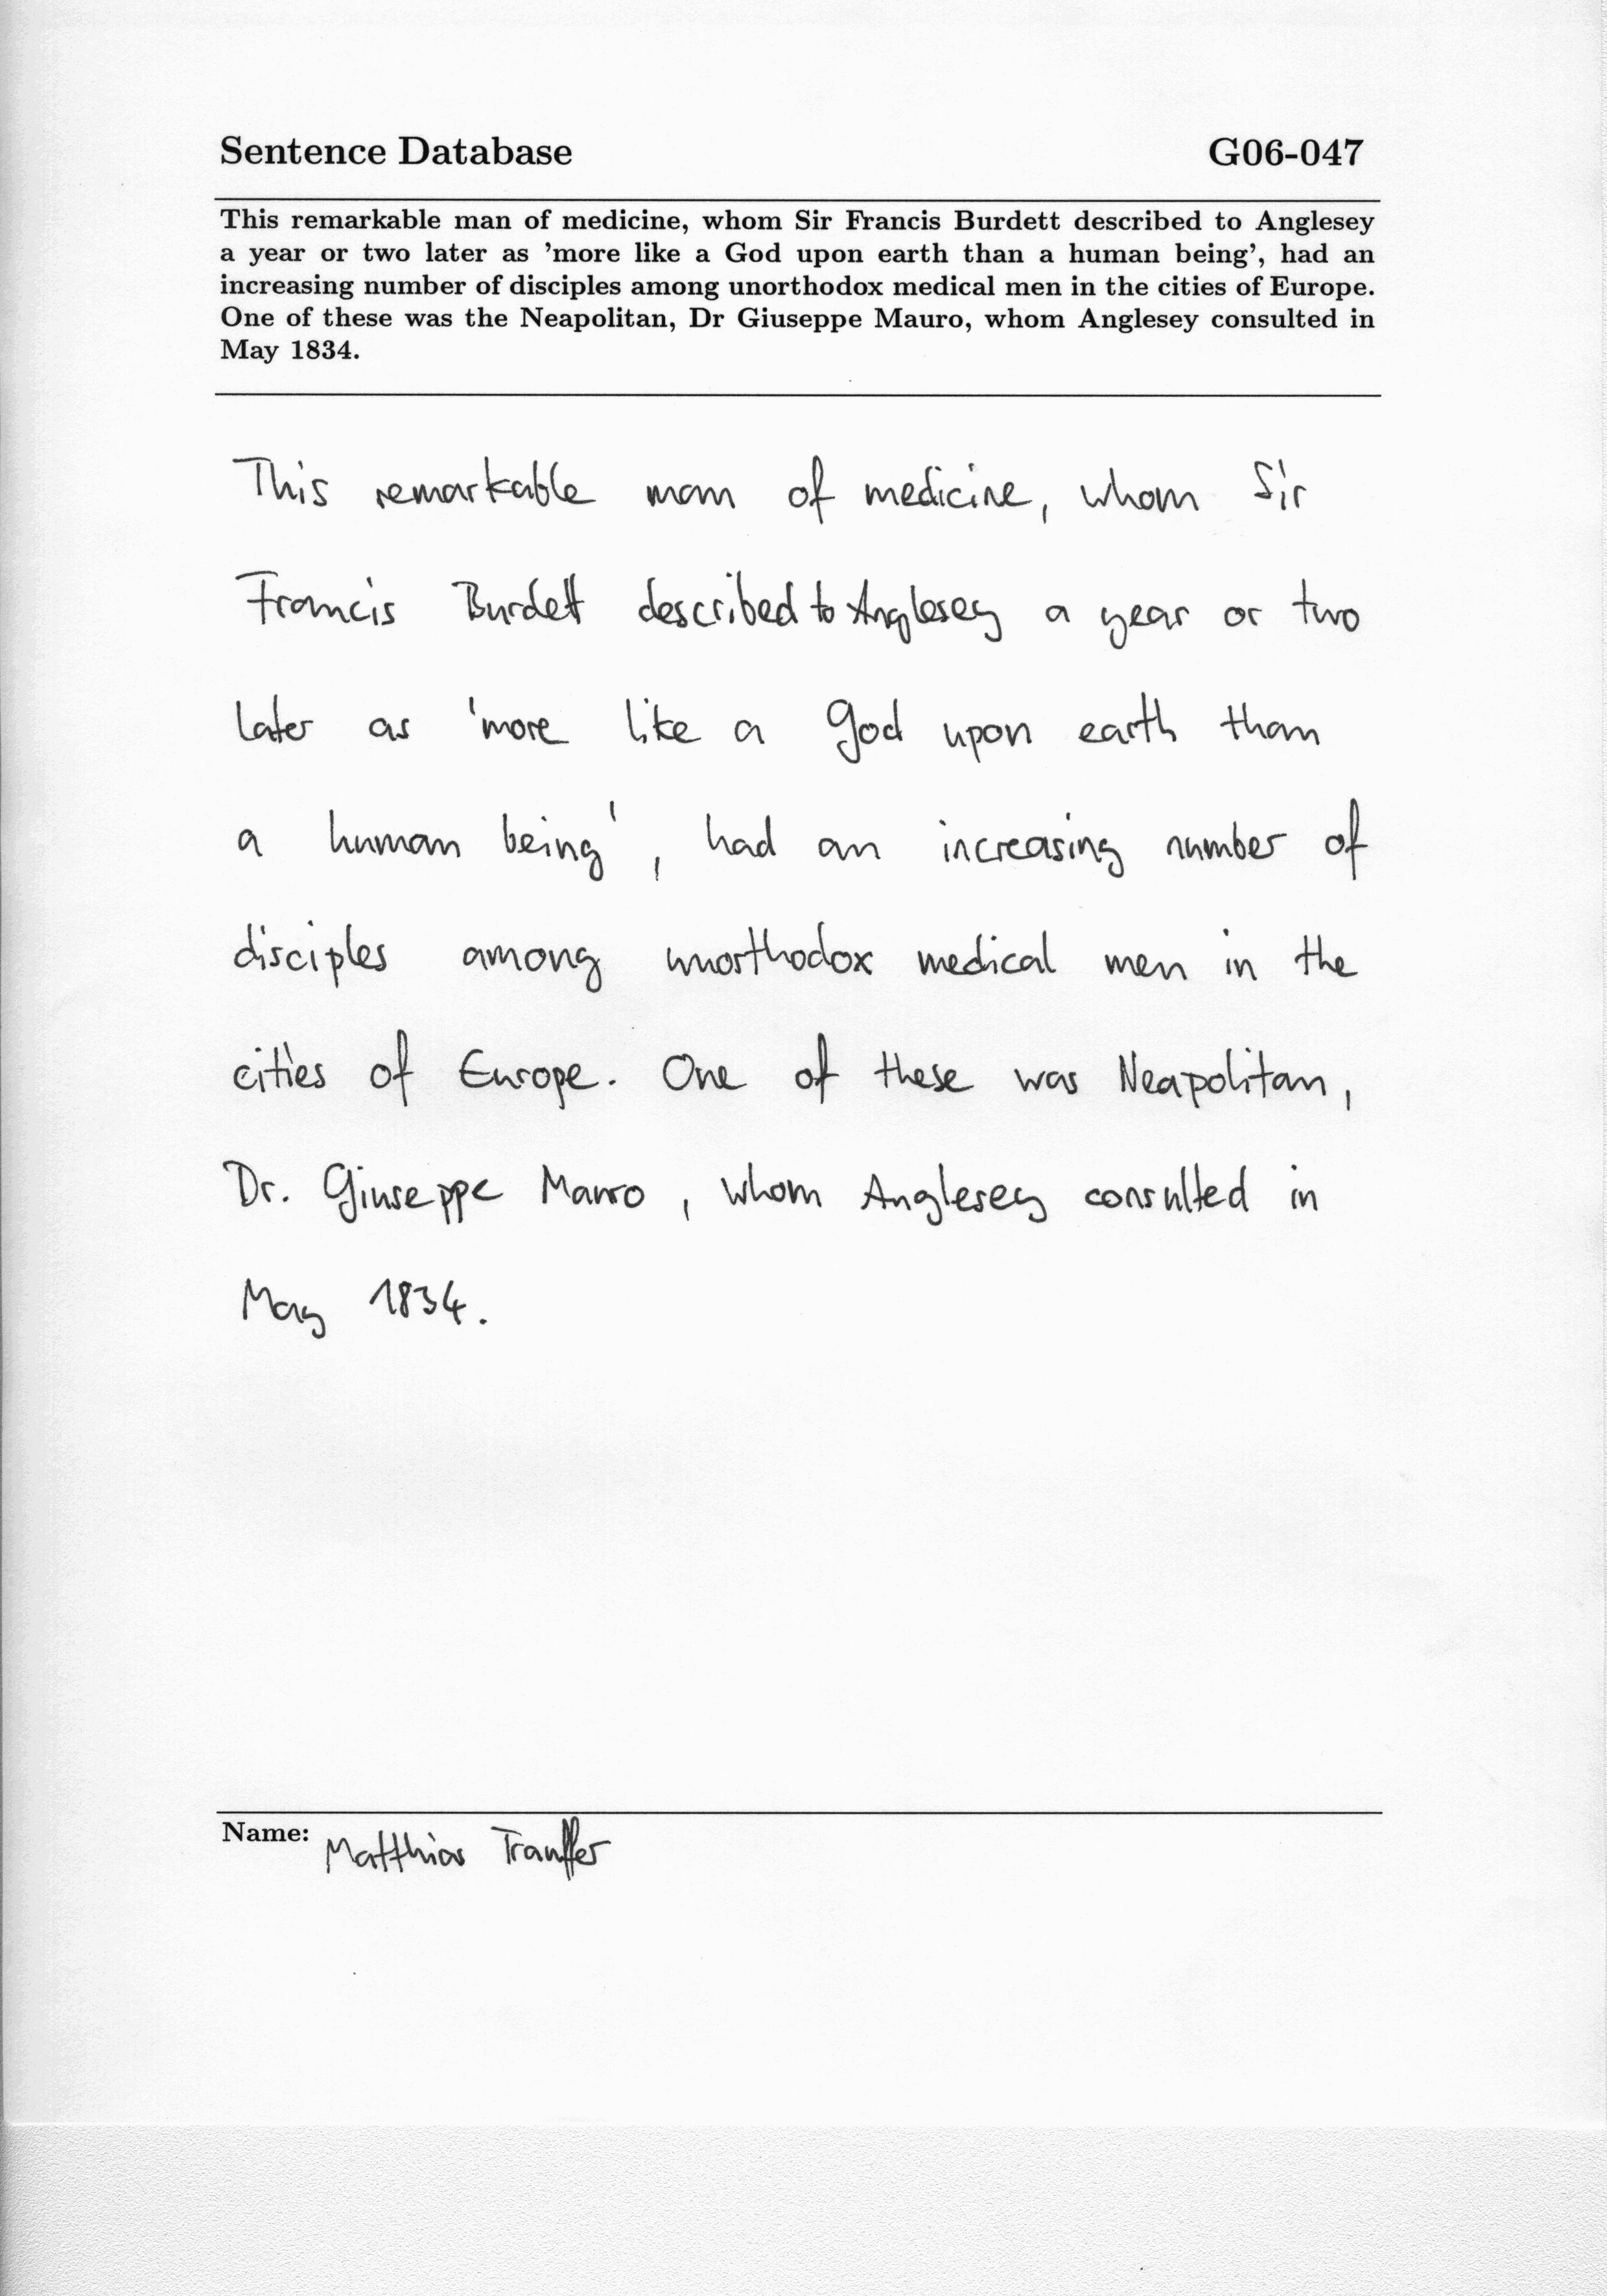 Sentence Database G06-047
This remarkable man of medicine, whom Sir Francis Burdett described to Anglesey
a year or two later as 'more like a God upon earth than a human being', had an
increasing number of disciples among unorthodox medical men in the cities of Europe.
One of these was the Neapolitan, Dr Giuseppe Mauro, whom Anglesey consulted in
May 1834.
This remarkable man of medicine, whom Sir
Francis Burdett described to Anglesey a year or two
later as 'more like a God upon earth than
a human being', had an increasing number of
disciples among unorthodox medical men in the
cities of Europe. One of these was Neapolitan,
Dr. Giuseppe Mauro, whom Anglesey consulted in
May 1834.
Name: Matthias